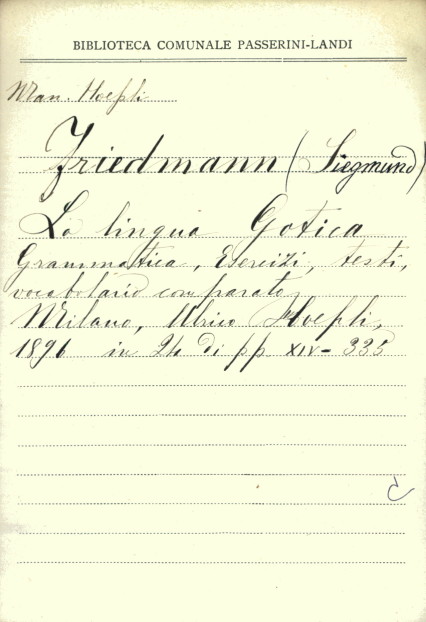 BIBLIOTECA COMUNALE PASSERINI-LANDI
Man. Hoepli
Friedmann (Siegmund)
La lingua Gotica
Grammatica, Esercizi, testi,
vocabolario comparato
Milano, Ulrico Hoepli,
1896 in 24 di pp XIV-335